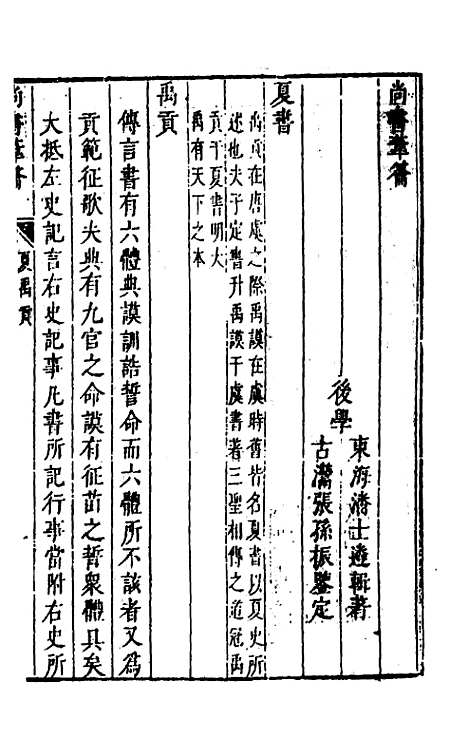 尚書葦籥
後學
東海潘士遴輯著
古瀛張孫振鑒定
夏書
禹貢在唐虞之際禹謨在虞時舊皆名夏書以夏史所
述也夫子定書升禹謨于虞書著三聖相傳之道冠禹
貢于夏書明大
禹有天下之本
禹貢
傳言書有六體典謨訓誥誓命而六體所不該者又為
貢範征歌夫典有九官之命謨有征苗之誓眾體具矣
大抵左史記言右史記事凡書所記行事當附右史所
尚書葦籥
夏禹貢